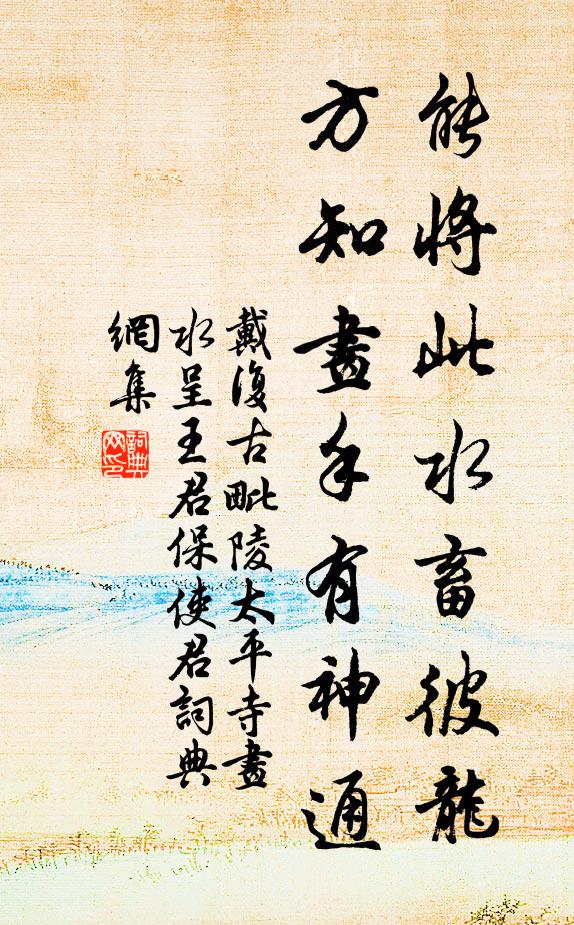 能將此水畜彼龍
方知畫手有神通
戴復古毗陵太平寺畫
水呈王君保使君詞典
網集
詞典
网印